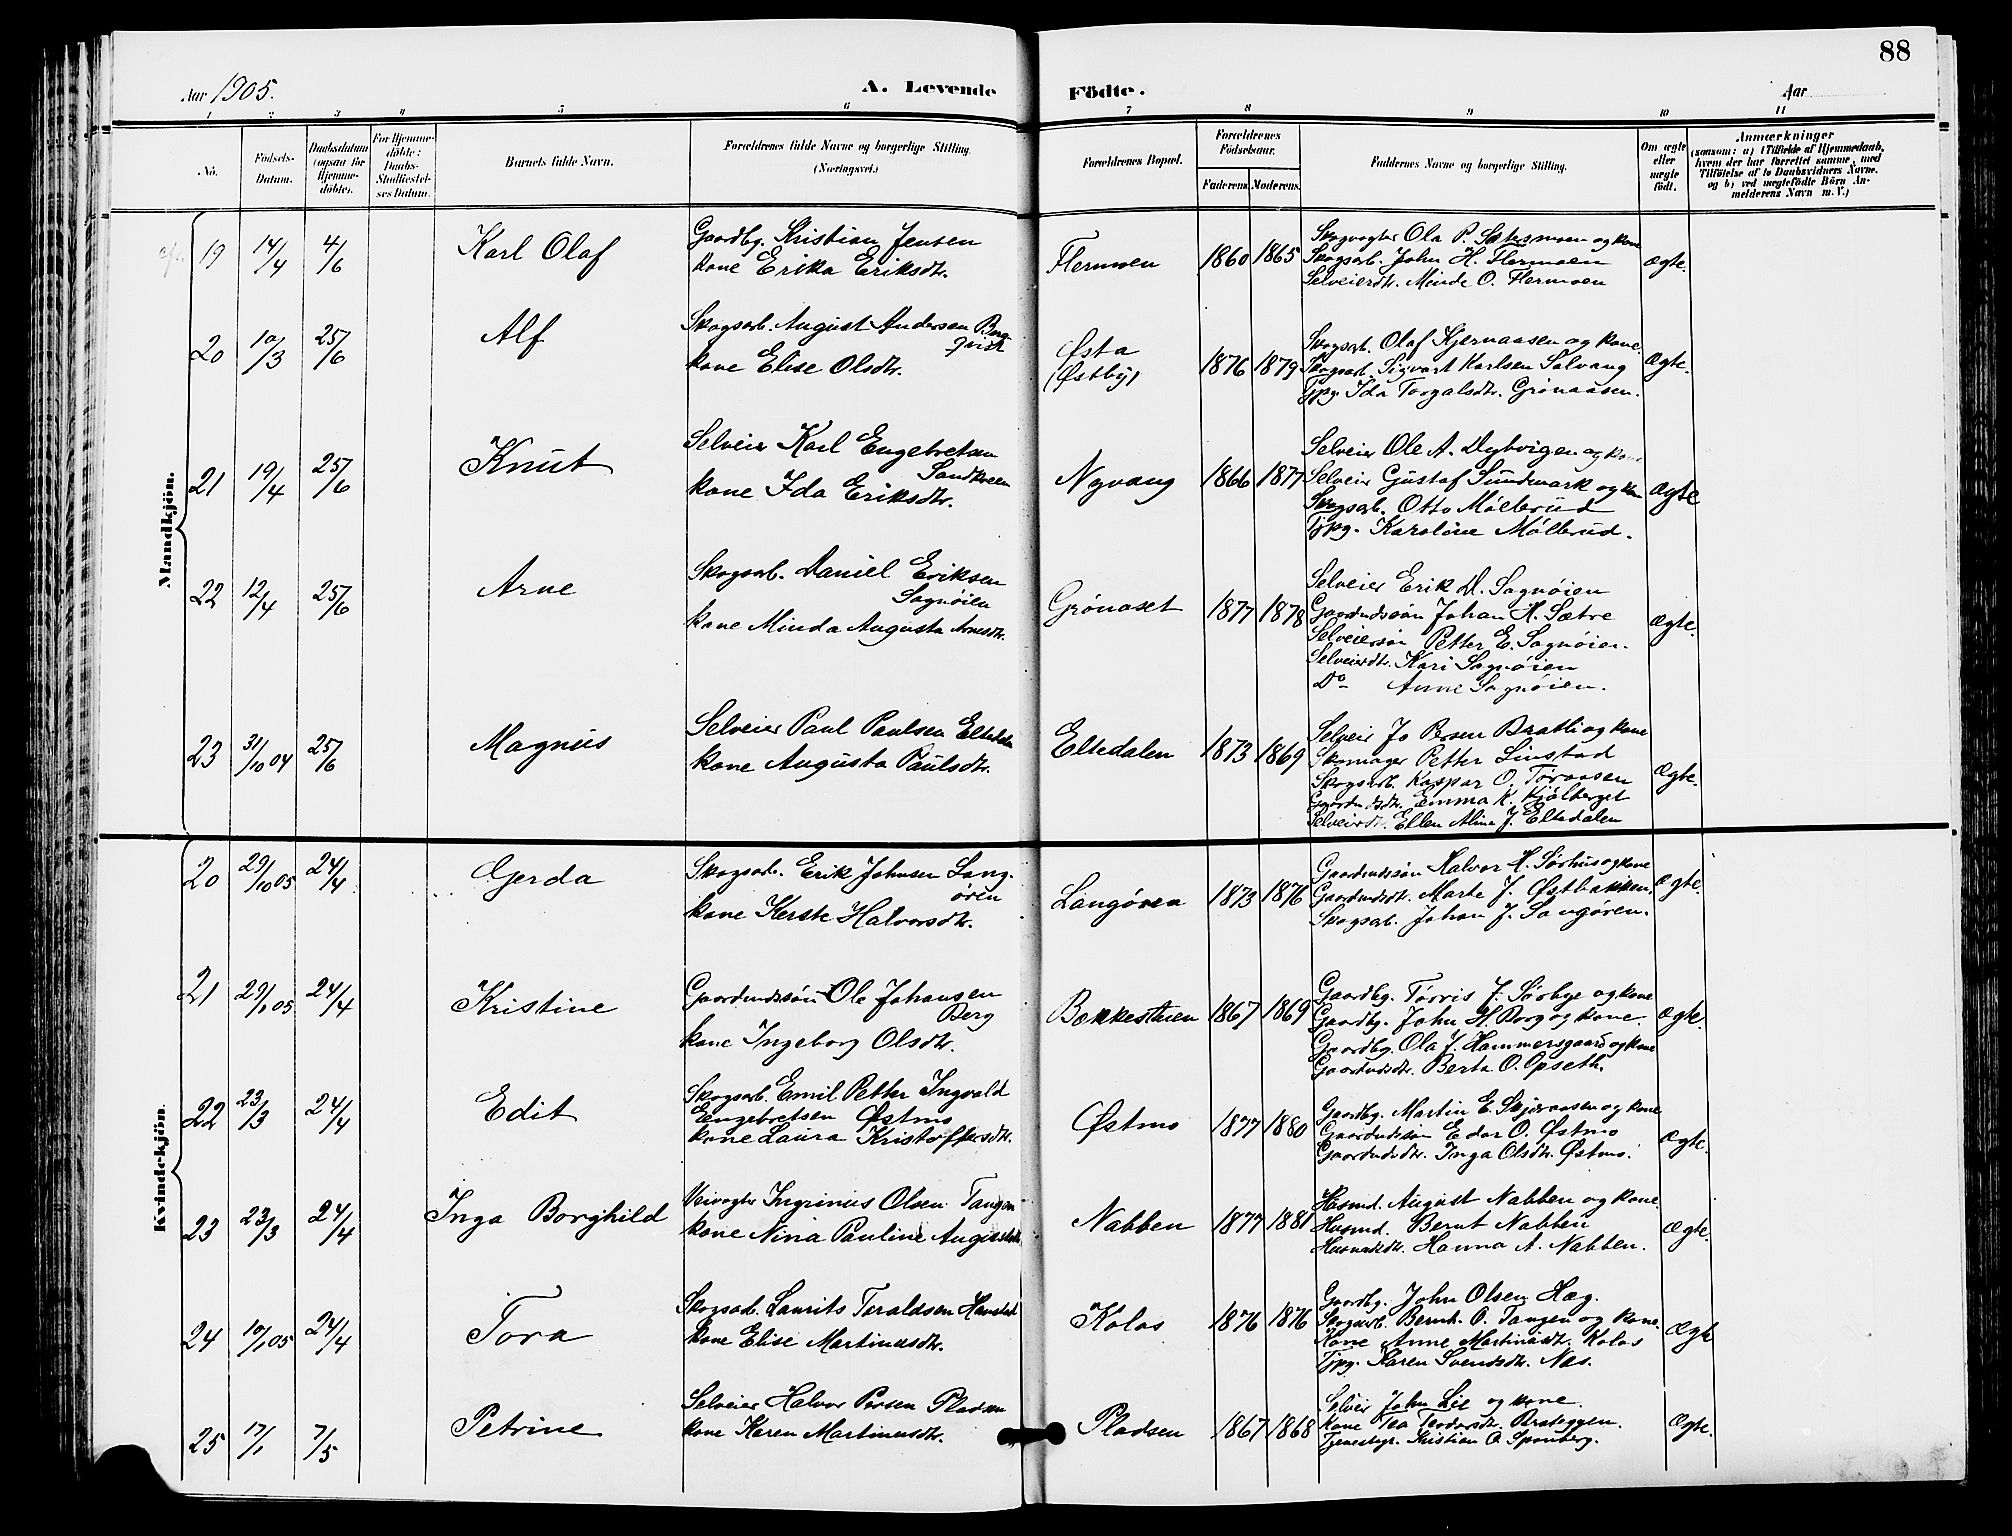 88
Aar 1905. A. Levende Födte. Aar
1 2 3 4 5 6 7 8 9 10 11
No. Födsels-Datum. Daabsdatum (ogsaa for Hjemmedöbte). For Hjemmedöbte: Daabs-Stadfæstelses Datum. Barnets fulde Navn. Forældrenes fulde Navne og borgerlige Stilling. (Næringsvei.) Forældrenes Bopæl. Forældrenes Födselsaar. Faderens. Moderens. Faddernes Navne og borgerlige Stilling. Om ægte eller uægte född. Anmærkninger (saasom: a) i Tilfælde af Hjemmedaab, hvem der har forrettet samme, med Tilföielse af to Daabsvidners Navne, og b) ved uægtefödte Börn Anmelderens Navn m. V.)
Mandkjön.
19 14/4 4/6 Karl Olaf
Gaardbg. Kristian Jensen
kone Erika Eriksdtr.
Flermoen 1860 1865
Skogvogter Ola P. Sætesmoen og kone
Skogsarb. John H. Flermoen
Selveierdtr. Minde O. Flermoen
Ægte.
20 10/3 25/6 Alf
Skogsarb. August Andersen Bergqvist
kone Elise Olsdtr.
Østa
(Østby) 1876 1879
Skogsarb. Olaf Kjernaasen og kone.
Skogsarb. Sigvart Karlsen Solvang
Tjpg. Ida Torgalsdtr. Grönaasen.
Ægte.
21 19/4 25/6 Knut
Selveier Karl Engebretsen
Sandkveen
kone Ida Eriksdtr.
Nyvang 1866 1877
Selveier Ole A. Dybvigen og kone
Selveier Gustaf Sundmark og kone
Skogsarb. Otto Möllerud
Tjpg. Karoline Möllerud.
Ægte
22 12/4 25/6 Arne
Skogsarb. Daniel Eriksen
Sagnöien
kone Minda Augusta Arnesdtr.
Grönoset 1877 1878
Selveier Erik D. Sagnöien
Gaardmdssön Johan H. Sætre
Selveiersön Petter E. Sagnöien.
Selveierdtr. Kari Sagnöien
Do Anne Sagnöien.
Ægte.
23 31/10 04 25/6 Magnus
Selveier Paul Paulsen Eltedalen
kone Augusta Paulsdtr.
Eltedalen 1873 1869
Selveier Jo Persen Bratli og kone
Skomager Petter Linstad
Skogsarb. Kaspar O. Töraasen
Gaardmdsdtr. Emma K. Kjölberget
Selveierdtr. Ellen Alma J. Eltedalen
Ægte.
Kvindekjön.
20 29/10 05 24/4 Gerda
Skogsarb. Erik Johnsen Langören
kone Kerste Halvorsdtr.
Langören 1873 1876
Gaardmdssön Halvor H. Sörhus og kone
Gaardmdsdtr. Marte J. Østbakken.
Skogsarb. Johan J. Langören.
Ægte.
21 29/1 05 24/4 Kristine
Gaardmdssön Ole Johansen
Berg
kone Ingeborg Olsdtr.
Bækkestuen 1867 1869
Gaardbg. Törris J. Sörbye og kone
Gaardbg. John H. Borg og kone.
Gaardbg. Ola J. Hammersgaard og kone
Gaardmdsdtr. Berta O. Opseth.
Ægte.
22 23/3 24/4 Edit
Skogsarb. Emil Petter Ingvald
Engebretsen Østmo
kone Laura Kristoffersdtr.
Østmo 1877 1880
Gaardbg. Martin E. Skjöraasen og kone
Gaardmdssön Edar O. Østmo
Gaardmdsdtr. Inga Olsdtr. Østmo.
Ægte.
23 23/3 24/4 Inga Borghild
Veivogter Ingrinus Olsen Tangen
kone Nina Pauline Augustsdtr.
Nabben 1877 1881
Husmd. August Nabben og kone.
Husmd. Bernt Nabben
Husmdsdtr. Hanna A. Nabben.
Ægte.
24 10/1 05 24/4 Tora
Skogsarb. Laurits Toraldsen Hanstad
kone Elise Martinusdtr.
Kolos 1876 1876
Gaardbg. John Olsen Hæg.
Skogsarb. Bernh. O. Tangen og kone.
Kone Anne Martinusdtr. Kolos
Tjpg. Karen Svendsdtr. Næs.
Ægte
25 17/1 7/5 Petrine
Selveier Halvor Persen Pladsen
kone Karen Martinusdtr.
Pladsen 1867 1868
Selveier John Lie og kone.
kone Tea Teodorsdtr. Brateggen.
Tjenestegr. Kristian O. Sponberg.
Ægte.